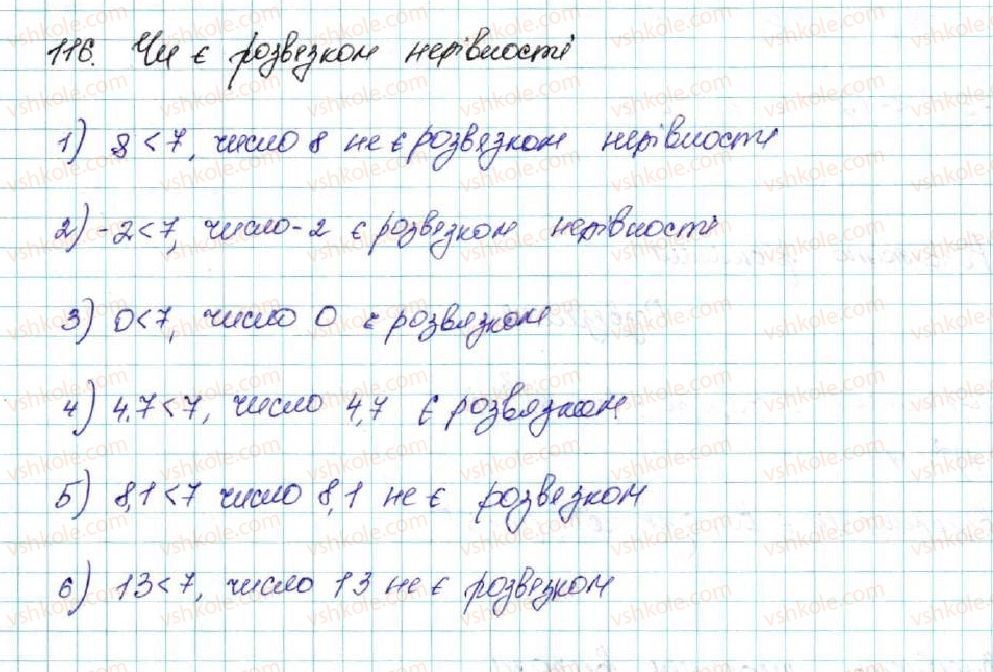 116. Чи є розвязком нерівності
1) 8 < 7, число 8 не є розвязком нерівності
2) -2 < 7, число -2 є розвязком нерівності
3) 0 < 7, число 0 є розвязком
4) 4,7 < 7, число 4,7 є розвязком
5) 8,1 < 7 число 8,1 не є розвязком
6) 13 < 7, число 13 не є розвязком